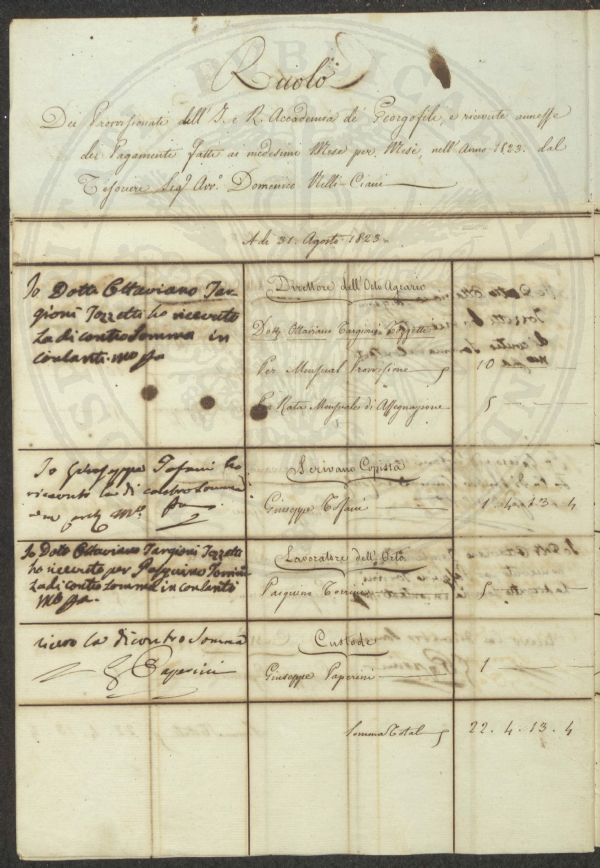 Ruolo
Dei Provvisionati dell' I. e R. Accademia de' Georgofili, e ricevute annesse
dei Pagamenti fatti ai medesimi Mese per Mese, nell' Anno 1823. dal
Tesoriere Sig.r Avv.o Domenico Nelli-Ciani
A dì 31. Agosto 1823.
Io Dott. Ottaviano Tar-
gioni Tozzetti ho ricevuto
La di contro Somma in
contanti. M.o p.a
Direttore dell' Orto Agrario
Dott. Ottaviano Targioni Tozzetti
Per Mensual Provvisione 10
Per Rata Mensuale di Assegnazione 5
Io Giuseppe Tofani ho
ricevuto la di contro Somma
M.o p.a
Scrivano Copista
Giuseppe Tofani 1. 4. 13. 4
Io Dott. Ottaviano Targioni Tozzetti
ho ricevuto per Pasquino Torrini
La di contro Somma in contanti
M.o p.a
Lavoratore dell' Orto
Pasquino Torrini 5
ricevo la di contro Somma
G Paperini
Custode
Giuseppe Paperini 1
Somma Total 22. 4. 13. 4